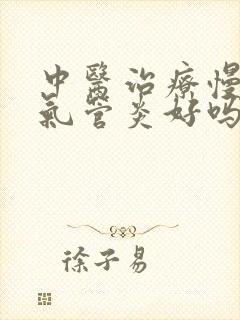 中醫治療慢
氣管炎好吗
徐子易